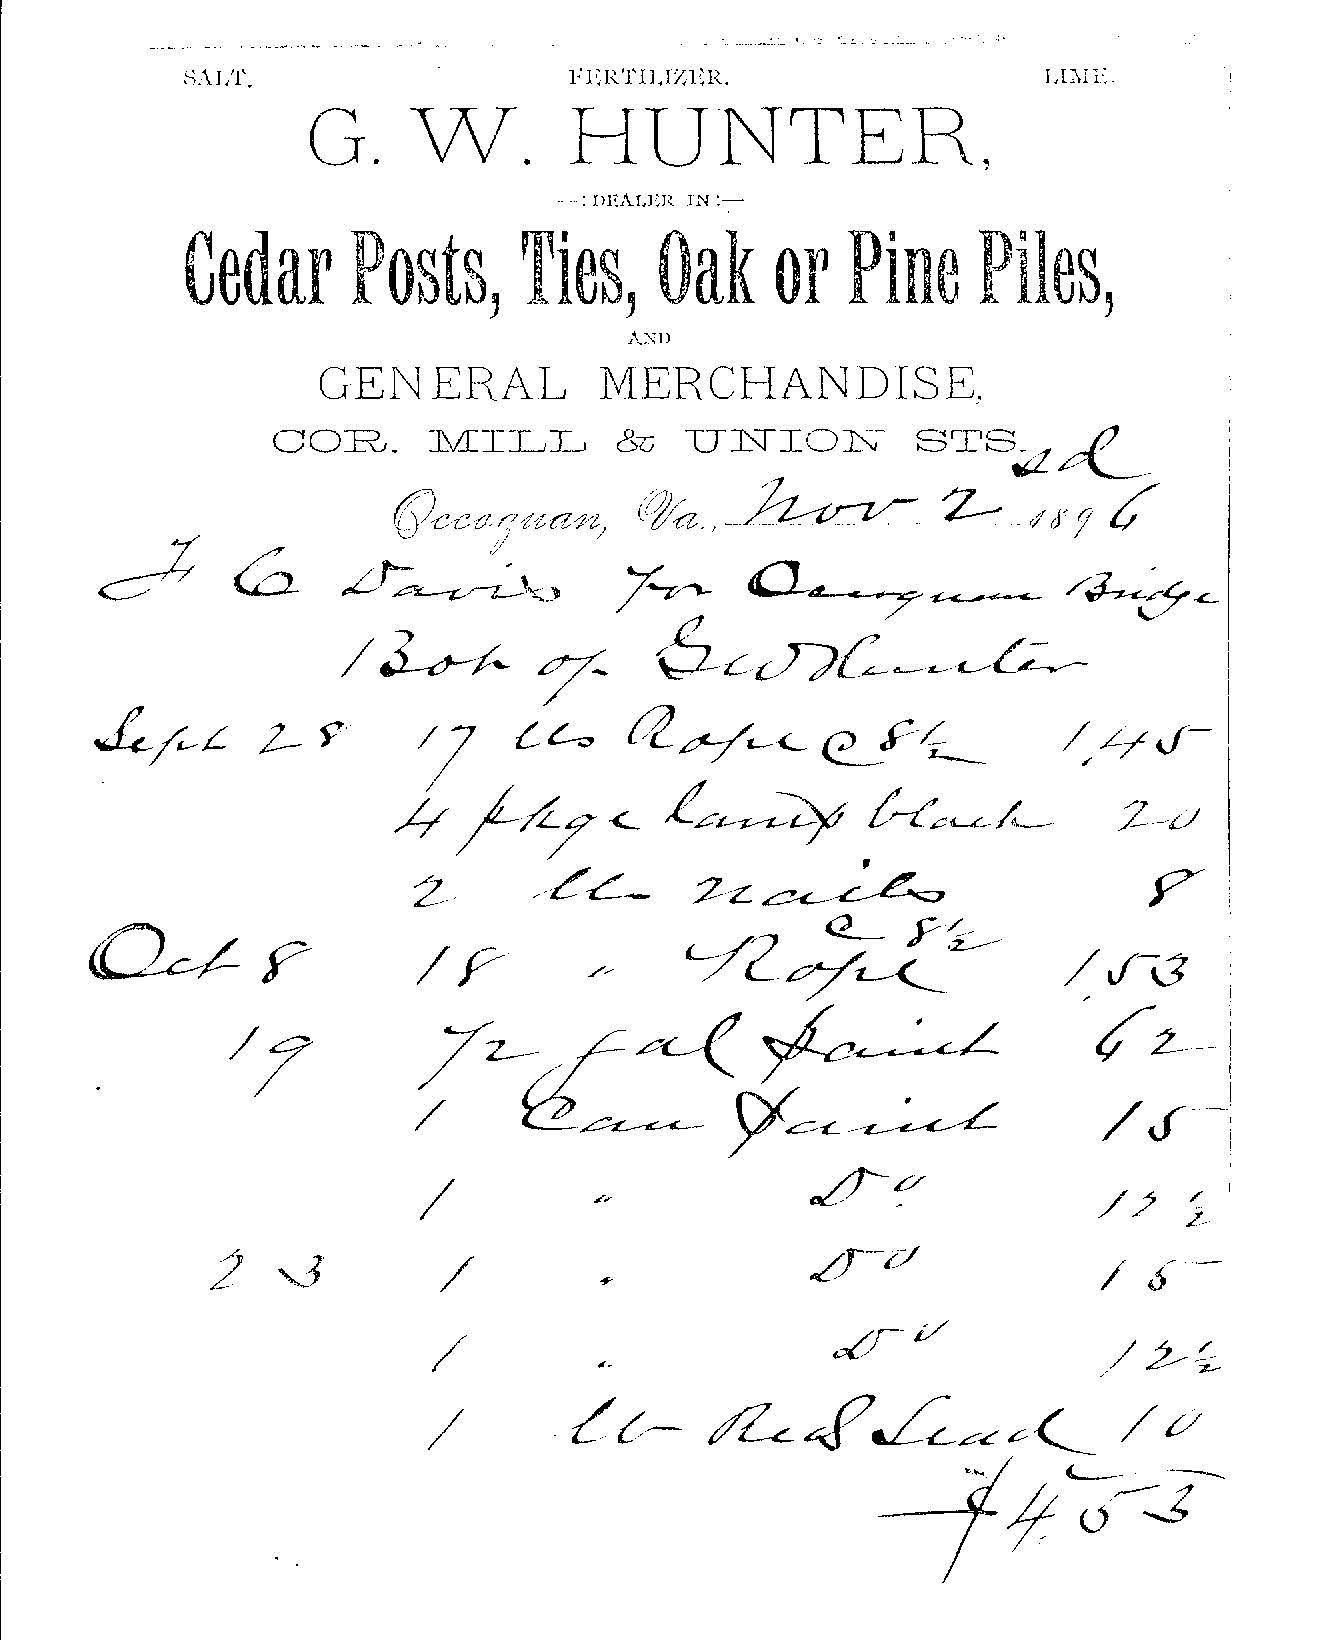 SALT. FERTILIZER. LIME.
G. W. HUNTER,
--:DEALER IN:--
Cedar Posts, Ties, Oak or Pine Piles,
AND
GENERAL MERCHANDISE,
COR. MILL & UNION STS.
Occoquan, Va., Nov 2sd 1896
F C Davis For Occoquan Bridge
Bot of G W Hunter
Sept 28 17 lbs Rope @ 8½ 1.45
4 pkge lamp black 20
2 lbs nails 8
Oct 8 18 " Rope @ 8½ 1.53
19 1/2 gal paint 62
1 Can paint 15
1 " Do 12½
23 1 " Do 15
1 " Do 12½
1 lb Red Lead 10
$4.53